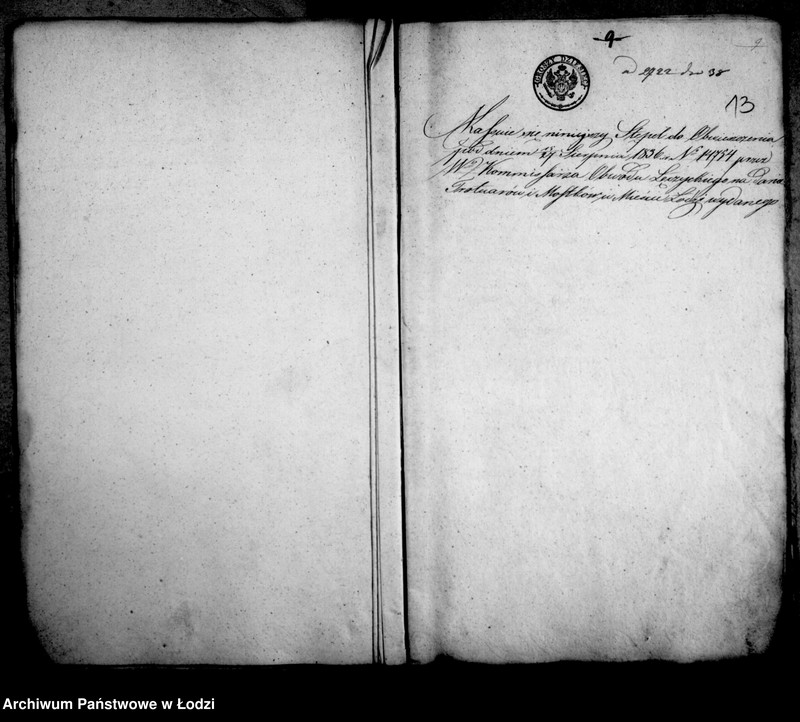 9
9
GROSZY DZIESIĘĆ
13
Kassuie się ninieyszy Stępel do Obwieszczenia
pod dniem 27 Sierpnia 1836 r. No przez
W. Kommissarza Obwodu Łęczyckiego na
Trotuarów i Mostków w Mieście Łodzi wydanego
Archiwum Państwowe w Łodzi